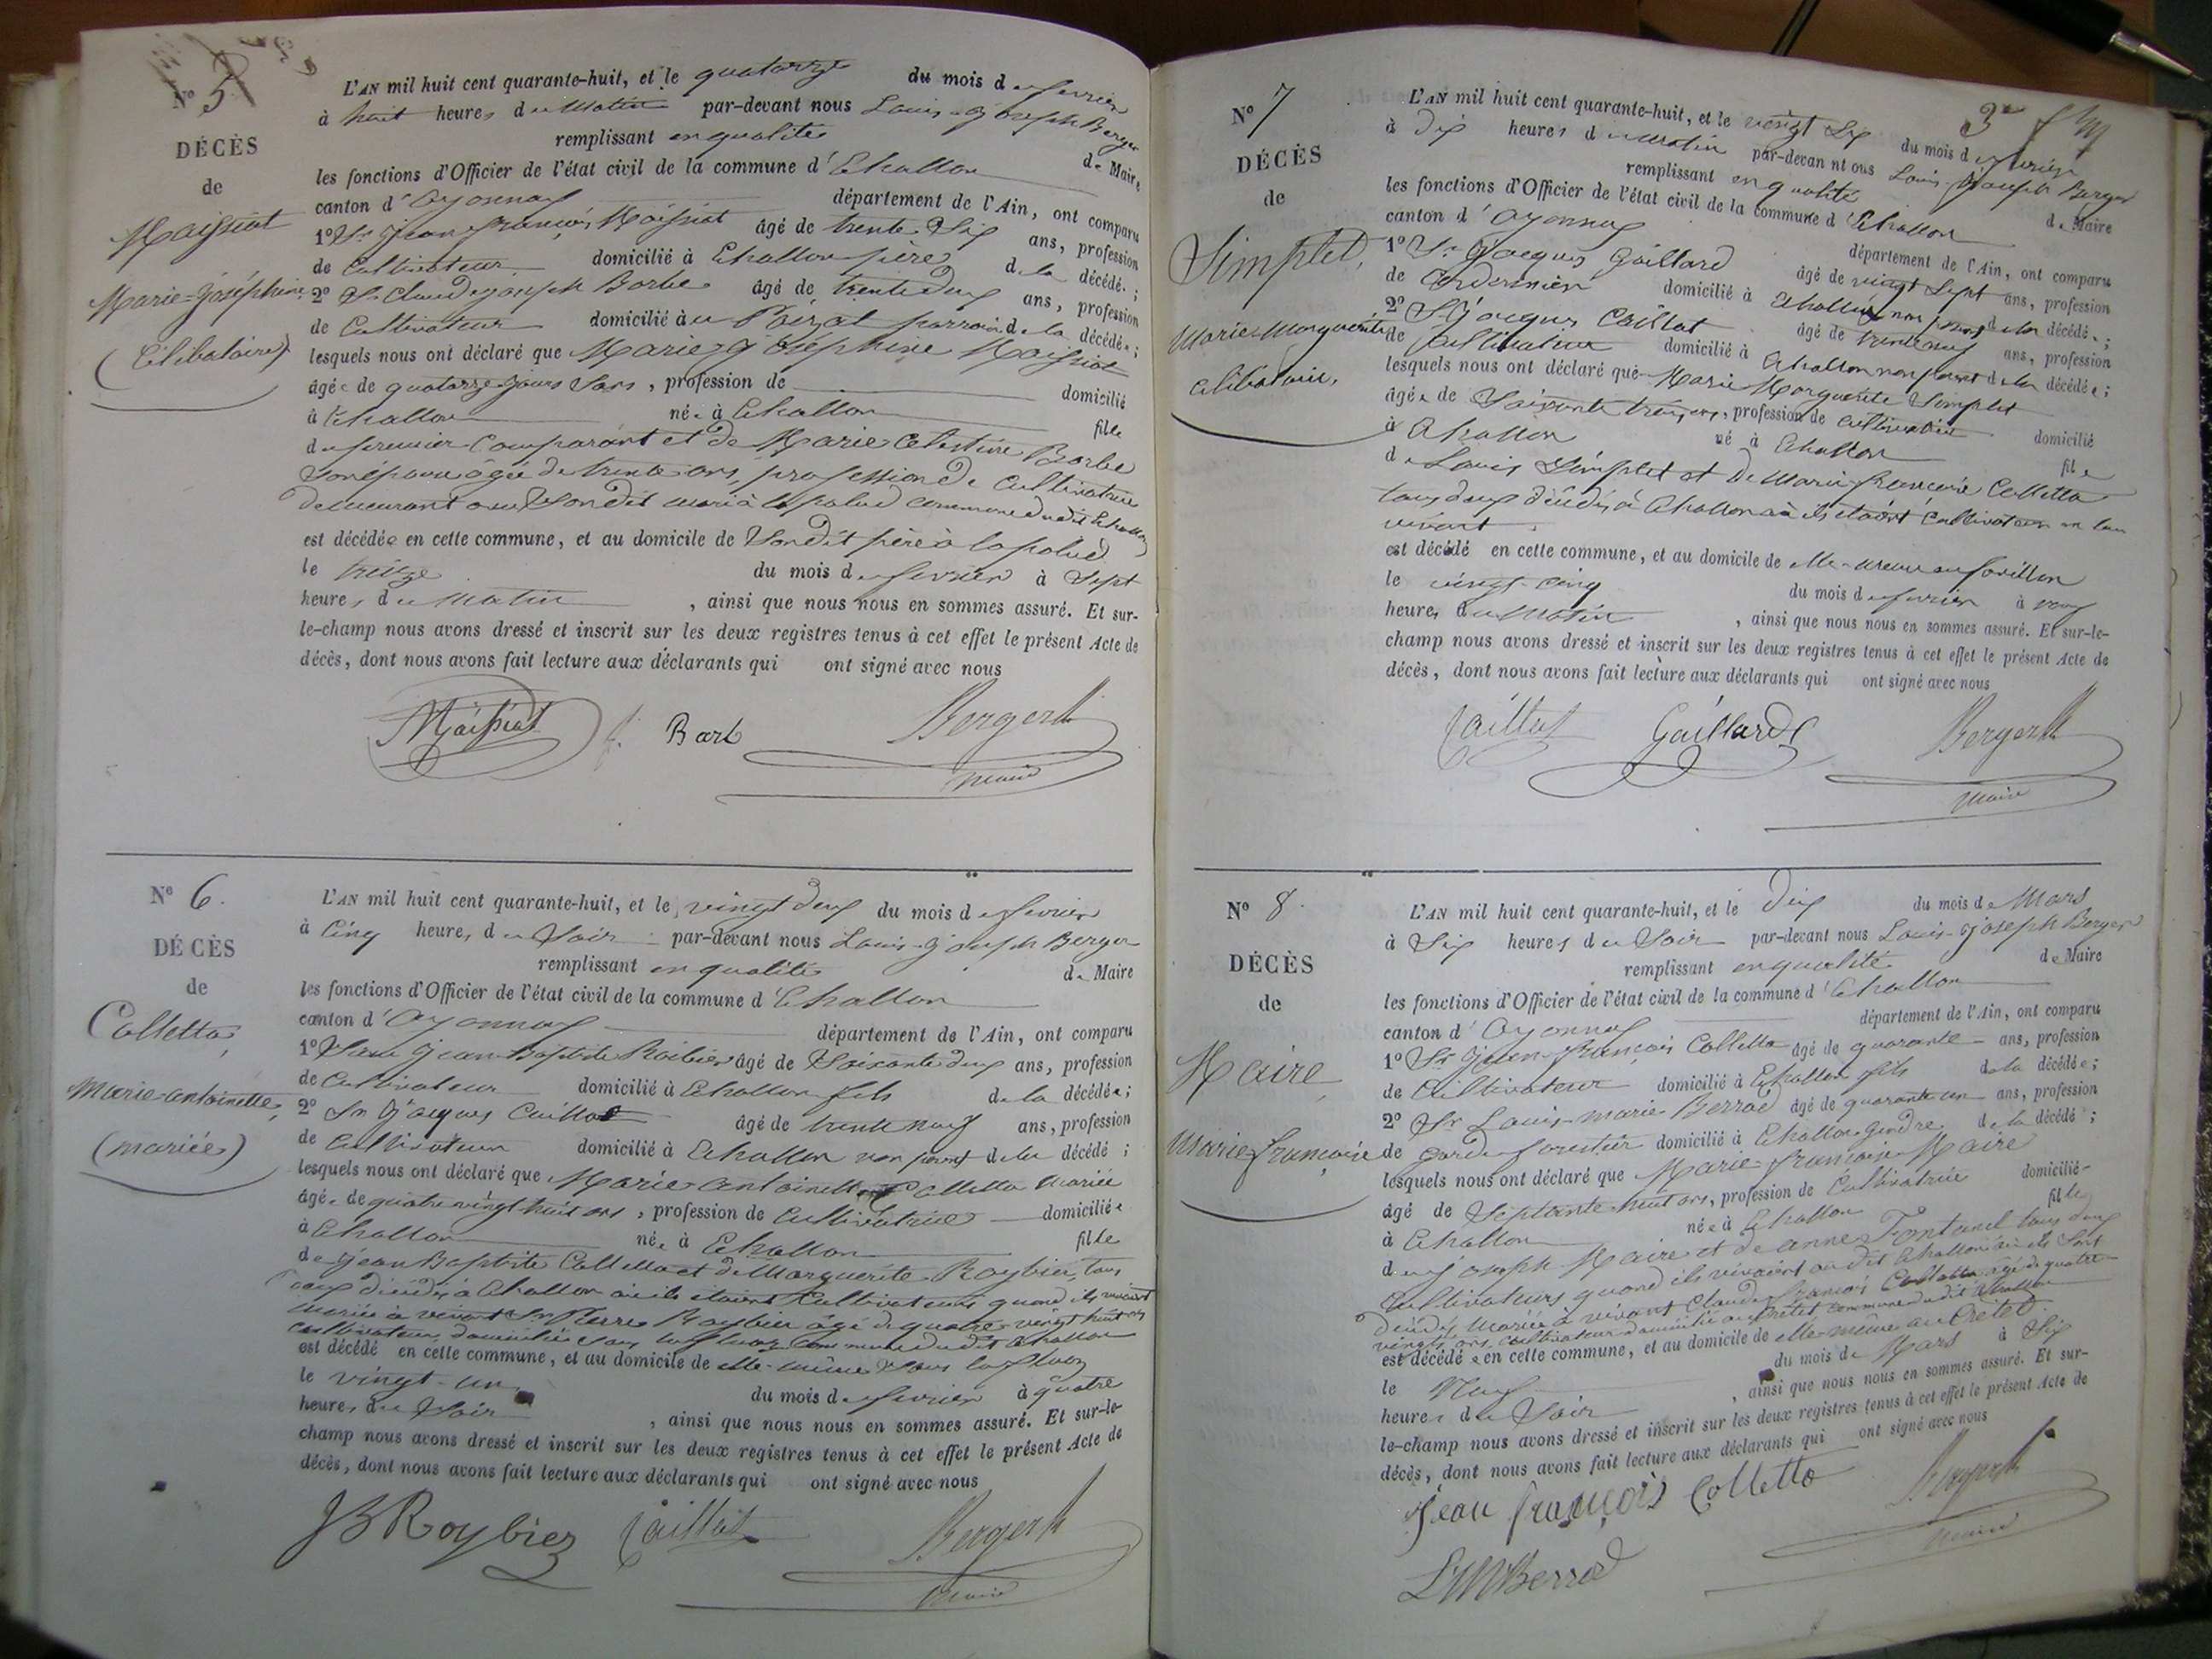 N° 5
DÉCÈS
de
Maissiat
Marie-Joséphine
(Célibataire)
L'AN mil huit cent quarante-huit, et le quatorze du mois de fevrier
à huit heures du Matin par-devant nous Louis-Joseph Berger
remplissant en qualité de Maire
les fonctions d'Officier de l'état civil de la commune d'Echallon
canton d'Oyonnax département de l'Ain, ont comparu
1° Sr Jean-François Maissiat âgé de trente Six ans, profession
de Cultivateur domicilié à Echallon père de la décédée ;
2° Sr Claude Joseph Barbe âgé de trente deux ans, profession
de Cultivateur domicilié au Poizat parrain de la décédée ;
lesquels nous ont déclaré que Marie-Joséphine Maissiat
âgée de quatorze jours Sans, profession de domicilié
à Echallon née à Echallon fille
du premier Comparant et de Marie Celestine Barbe
Son épouse âgée de trente ans, profession de Cultivatrice
demeurant avec Son dit mari à la palud commune dudit Echallon
est décédée en cette commune, et au domicile de Son dit père à la palud
le treize du mois de fevrier à Sept
heures du Matin, ainsi que nous nous en sommes assuré. Et sur-
le-champ nous avons dressé et inscrit sur les deux registres tenus à cet effet le présent Acte de
décès, dont nous avons fait lecture aux déclarants qui ont signé avec nous
Maissiat Barb Berger
Maire
N° 6.
DÉCÈS
de
Colletta,
Marie-antoinette,
(mariée)
L'AN mil huit cent quarante-huit, et le vingt deux du mois de fevrier
à Cinq heures du Soir par-devant nous Louis-Joseph Berger
remplissant en qualité de Maire
les fonctions d'Officier de l'état civil de la commune d'Echallon
canton d'Oyonnax département de l'Ain, ont comparu
1° Jean-Baptiste Roibier âgé de Soixante deux ans, profession
de Cultivateur domicilié à Echallon fils de la décédée ;
2° Sr Jacques Caillat âgé de trente neuf ans, profession
de Cultivateur domicilié à Echallon non parent de la décédé ;
lesquels nous ont déclaré que Marie antoinette Colletta mariée
âgée de quatre vingt huit ans, profession de Cultivatrice domiciliée
à Echallon née à Echallon fille
de Jean Baptiste Colletta et de Marguerite Roybier, tous
deux décédés à Echallon où ils étaient Cultivateurs quand ils vivaient
Mariée à vivant Sr Pierre Roybier âgé de quatre-vingt huit ans
cultivateur domicilié Sous commune dudit Echallon
est décédé en cette commune, et au domicile de elle-même Sous
le vingt-un du mois de fevrier à quatre
heures du Soir, ainsi que nous nous en sommes assuré. Et sur-le-
champ nous avons dressé et inscrit sur les deux registres tenus à cet effet le présent Acte de
décès, dont nous avons fait lecture aux déclarants qui ont signé avec nous
JB Roybier Caillat Berger
Maire
3e
N° 7
DÉCÈS
de
Simplet,
Marie-Marguerite
célibataire,
L'AN mil huit cent quarante-huit, et le vingt Six du mois de fevrier
à Dix heures du matin par-devan nt ous Louis-Joseph Berger
remplissant en qualité de Maire
les fonctions d'Officier de l'état civil de la commune d'Echallon
canton d'Oyonnax département de l'Ain, ont comparu
1° Sr Jacques Gaillard âgé de vingt Sept ans, profession
de Cordonnier domicilié à Echallon non parent de la décédé ;
2° Sr Jacques Caillat âgé de trente neuf ans, profession
de Cultivateur domicilié à Echallon non parent de la décédée ;
lesquels nous ont déclaré que Marie Marguerite Simplet
âgée de Soixante treize ans, profession de Cultivatrice domicilié
à Echallon né à Echallon file
de Louis Simplet et De Marie françoise Colletta
tous deux décédés à Echallon où ils étaient Cultivateurs en leur
vivant
est décédé en cette commune, et au domicile de elle-même au favillon
le vingt-cinq du mois de fevrier à neuf
heures du Matin, ainsi que nous nous en sommes assuré. Et sur-le-
champ nous avons dressé et inscrit sur les deux registres tenus à cet effet le présent Acte de
décès, dont nous avons fait lecture aux déclarants qui ont signé avec nous
Caillat Gaillard Berger
Maire
N° 8.
DÉCÈS
de
Maire
Marie françoise
L'AN mil huit cent quarante-huit, et le Dix du mois de Mars
à Six heures du Soir par-devant nous Louis-Joseph Berger
remplissant en qualité de Maire
les fonctions d'Officier de l'état civil de la commune d'Echallon
canton d'Oyonnax département de l'Ain, ont comparu
1° Sr Jean-françois Colletta âgé de quarante ans, profession
de Cultivateur domicilié à Echallon fils de la décédée ;
2° Sr Louis-marie Berrod âgé de quarante un ans, profession
de garde forestier domicilié à Echallon gendre de la décédé ;
lesquels nous ont déclaré que Marie françoise Maire
âgé de Septante huit ans, profession de Cultivatrice domicilié
à Echallon née à Echallon fille
de Joseph Maire et de anne Fontanel tous deux
Cultivateurs quand ils vivaient au dit Echallon où ils Sont
décédés Mariée à vivant Claude françois Colletta âgé de quatre-
vingts ans, Cultivateur domicilié au Crétet commune dudit Echallon
est décédée en cette commune, et au domicile de elle-même au Crétet.
le Neuf du mois de Mars à Six
heures du Soir, ainsi que nous nous en sommes assuré. Et sur-
le-champ nous avons dressé et inscrit sur les deux registres tenus à cet effet le présent Acte de
décès, dont nous avons fait lecture aux déclarants qui ont signé avec nous
Jean françois Colletta Berger
Maire
LMBerrod